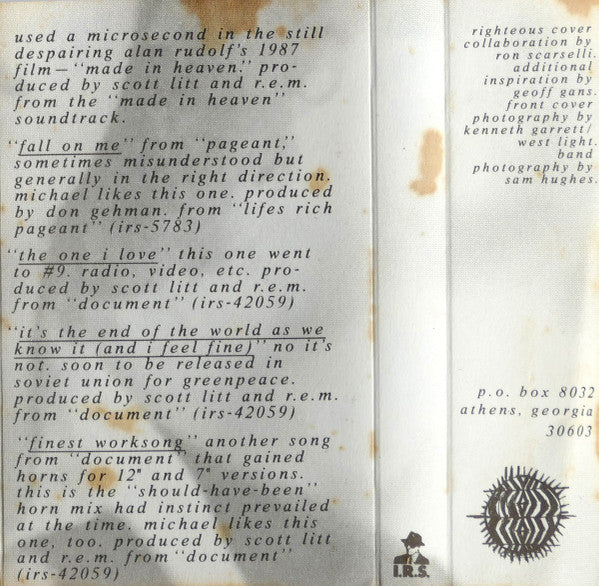 used a microsecond in the still
despairing alan rudolf's 1987
film—"made in heaven." pro-
duced by scott litt and r.e.m.
from the "made in heaven"
soundtrack.
"fall on me" from "pageant,"
sometimes misunderstood but
generally in the right direction.
michael likes this one. produced
by don gehman. from "lifes rich
pageant" (irs-5783)
"the one i love" this one went
to #9. radio, video, etc. pro-
duced by scott litt and r.e.m.
from "document" (irs-42059)
"it's the end of the world as we
know it (and i feel fine)" no it's
not. soon to be released in
soviet union for greenpeace.
produced by scott litt and r.e.m.
from "document" (irs-42059)
"finest worksong" another song
from "document" that gained
horns for 12" and 7" versions.
this is the "should-have-been"
horn mix had instinct prevailed
at the time. michael likes this
one, too. produced by scott litt
and r.e.m. from "document"
(irs-42059)
I.R.S.
righteous cover
collaboration by
ron scarselli.
additional
inspiration by
geoff gans.
front cover
photography by
kenneth garrett/
west light.
band
photography by
sam hughes.
p.o. box 8032
athens, georgia
30603